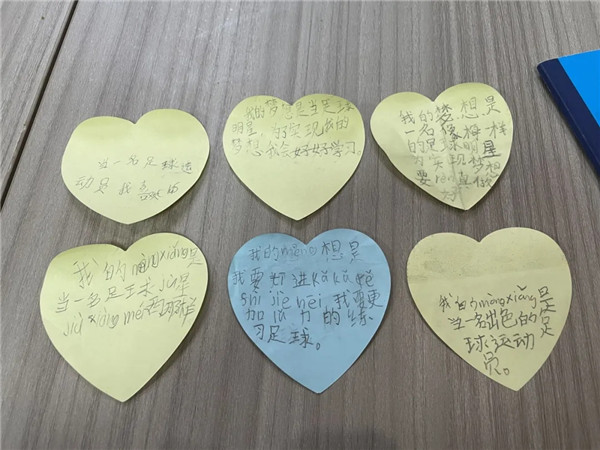 当一名足球运
动员 我喜欢
我的梦想是当足球
明星，为了实现我的
梦想我会好好学习。
我的梦想是
一名像梅一样
的足球明星
为实现梦想
要rèn真做
好
我的mèngxiǎng是
当一名足球jù星
jiù xiàng méi西那样
我的mèng想是
我要打进kǎ kǎ de
shì jiè bēi，我要更
加 力的练
习足球。
我的mèngxiǎng是
当一名出色的足
球运动
员。